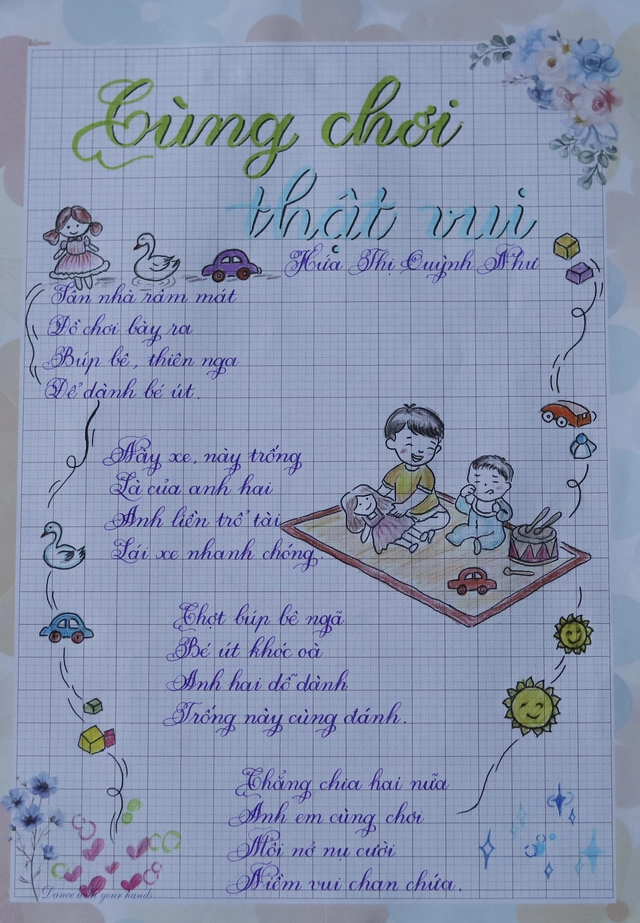 Cùng chơi
thật vui
Hứa Thị Quỳnh Như
Sân nhà râm mát
Đồ chơi bày ra
Búp bê, thiên nga
Để dành bé út.
Này xe, này trống
Là của anh hai
Anh liền trổ tài
Lái xe nhanh chóng.
Chợt búp bê ngã
Bé út khóc oà
Anh hai dỗ dành
Trống này cùng đánh.
Chẳng chia hai nữa
Anh em cùng chơi
Môi nở nụ cười
Niềm vui chan chứa.
Dance with your hands